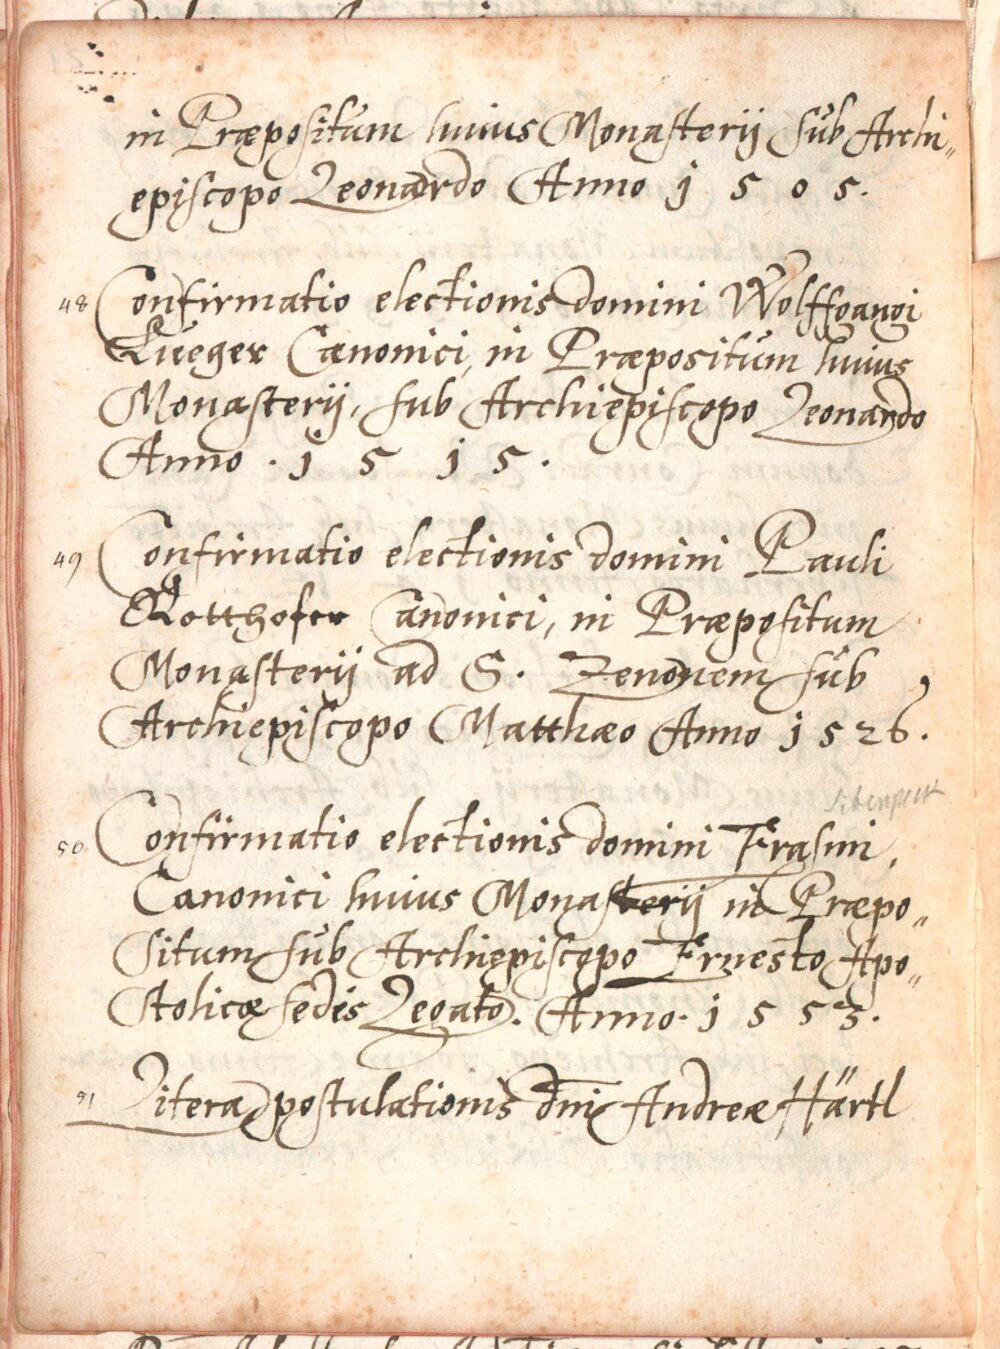 in Præpositum huius Monasterij sub Archi„
episcopo Leonardo Anno 1505.
48 Confirmatio electionis domini Wolffgangi
Rüeger Canonici, in Præpositum huius
Monasterij, sub Archiepiscopo Leonardo
Anno . 1515.
49 Confirmatio electionis domini Pauli
Rotthofer Canonici, in Præpositum
Monasterij ad S. Zenonem sub
Archiepiscopo Matthæo Anno 1526.
50 Confirmatio electionis domini Erasmi,
Canonici huius Monasterij in Præpo„
situm sub Archiepiscopo Ernesto Apo„
stolicæ sedis Legato. Anno. 1553.
51 Litera postulationis dni Andreæ Härtl